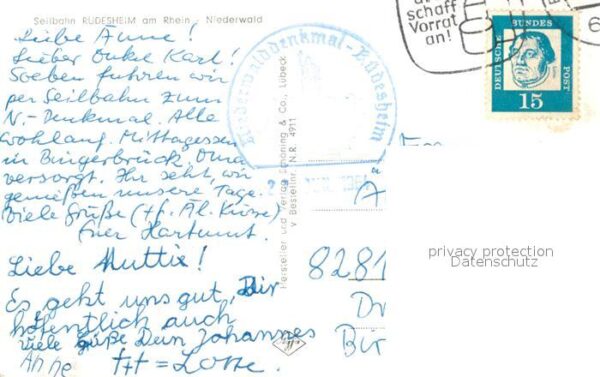 Seilbahn RÜDESHEIM am Rhein - Niederwald
Liebe Änne!
Lieber Onkel Karl!
Soeben fuhren wir
per Seilbahn zum
N.-Denkmal. Alle
wohlauf. Mittagessen
in Bingerbrück, Oma
versorgt. Ihr seht, wir
genießen unsere Tage.
Viele Grüße
Euer Hartmut.
Liebe Muttix!
Es geht uns gut, Dir
hoffentlich auch
viele Grüße Dein Johannes
Anne
Lotte.
Hersteller und Verlag Schöning & Co., Lübeck
V Bestellnr. N.R. 4911
Niederwalddenkmal-Rüdesheim
schaff
Vorrat
an!
6
DEUTSCHE
BUNDES
POST
15
8281
privacy protection
Datenschutz